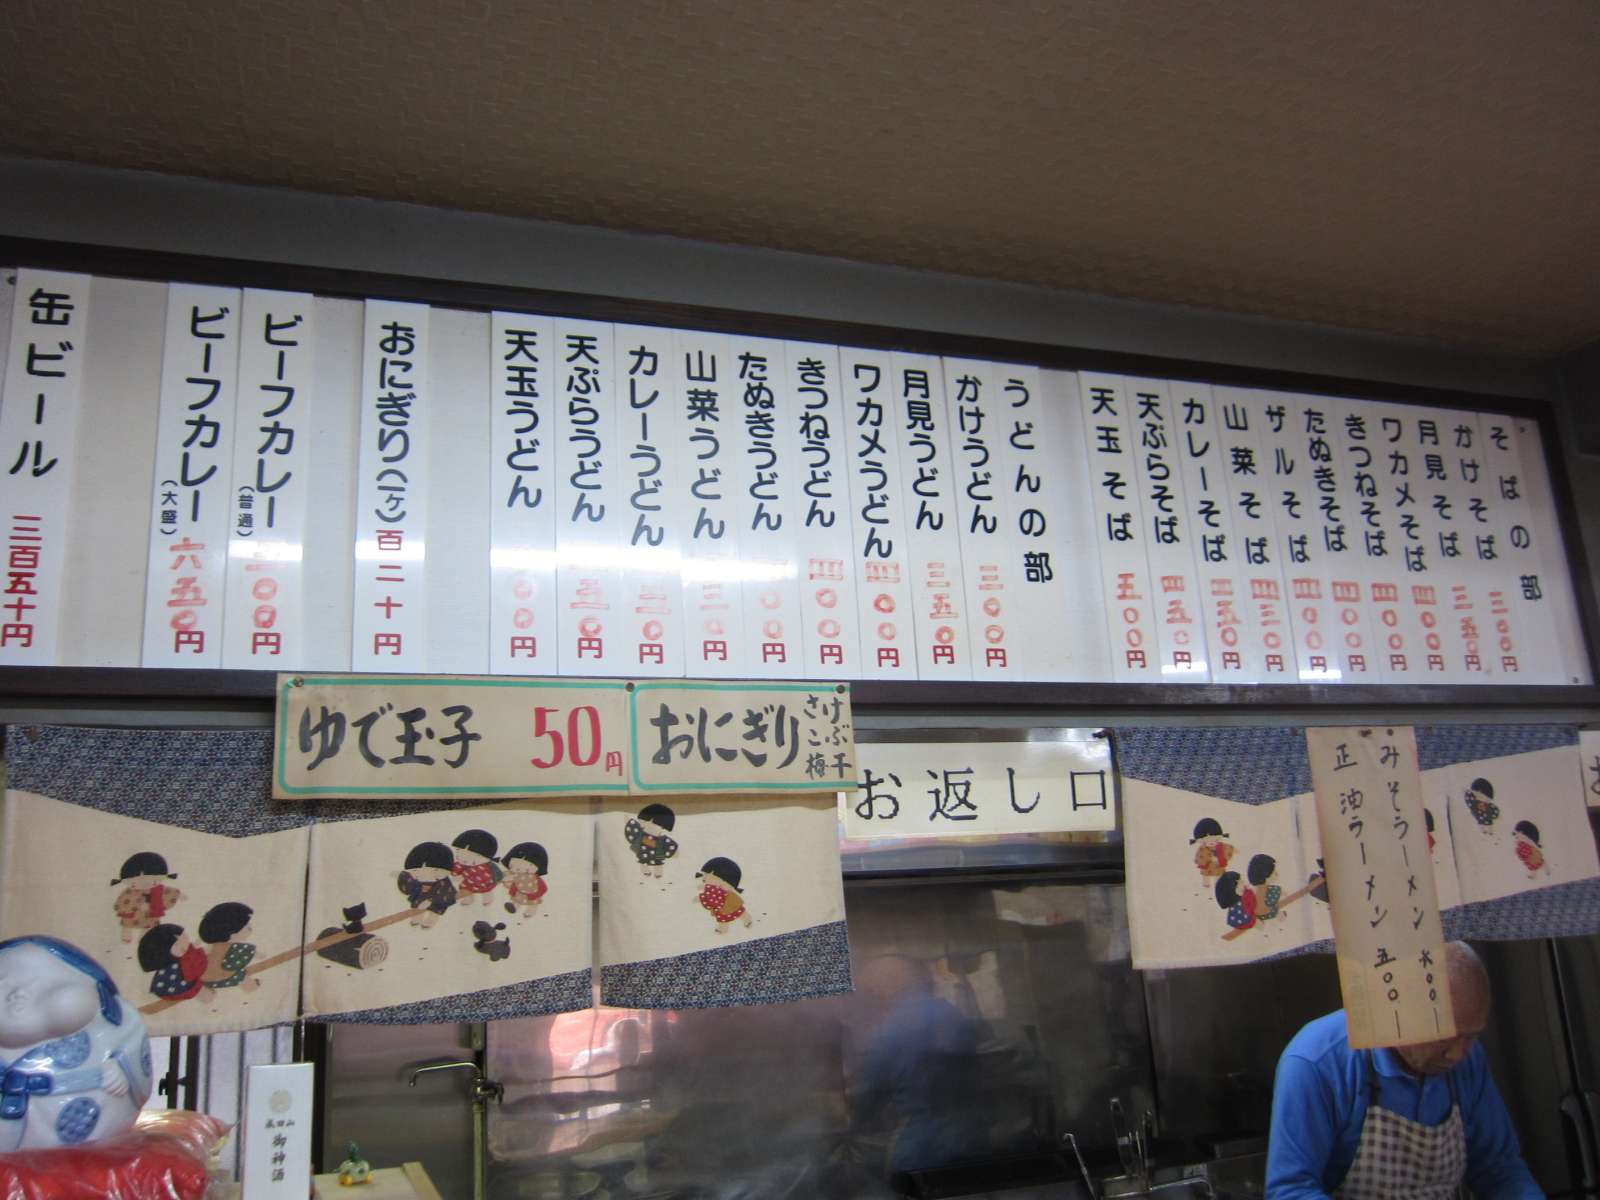 そばの部
かけそば 三〇〇円
月見そば 三五〇円
ワカメそば 四〇〇円
きつねそば 四〇〇円
たぬきそば 四〇〇円
ザルそば 四三〇円
山菜そば 四五〇円
カレーそば
天ぷらそば 四五〇円
天玉そば 五〇〇円
うどんの部
かけうどん 三〇〇円
月見うどん 三五〇円
ワカメうどん 四〇〇円
きつねうどん 四〇〇円
たぬきうどん 〇〇円
山菜うどん 三〇円
カレーうどん 三〇円
天ぷらうどん 五〇円
天玉うどん 〇〇円
おにぎり(一ケ) 百二十円
ビーフカレー(普通) 〇〇円
ビーフカレー(大盛) 六五〇円
缶ビール 三百五十円
ゆで玉子 50円
おにぎり さけ こぶ 梅干
お返し口
みそラーメン 六〇〇ー
正油ラーメン 五〇〇ー
御神酒